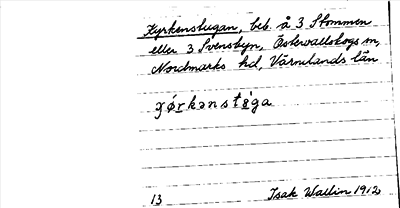 Kyrkenstugan, beb. å 3 Stommen
eller 3 Svensbyn, Östervallskogs sn,
Nordmarks hd, Värmlands län
13 Isak Wallin 1912